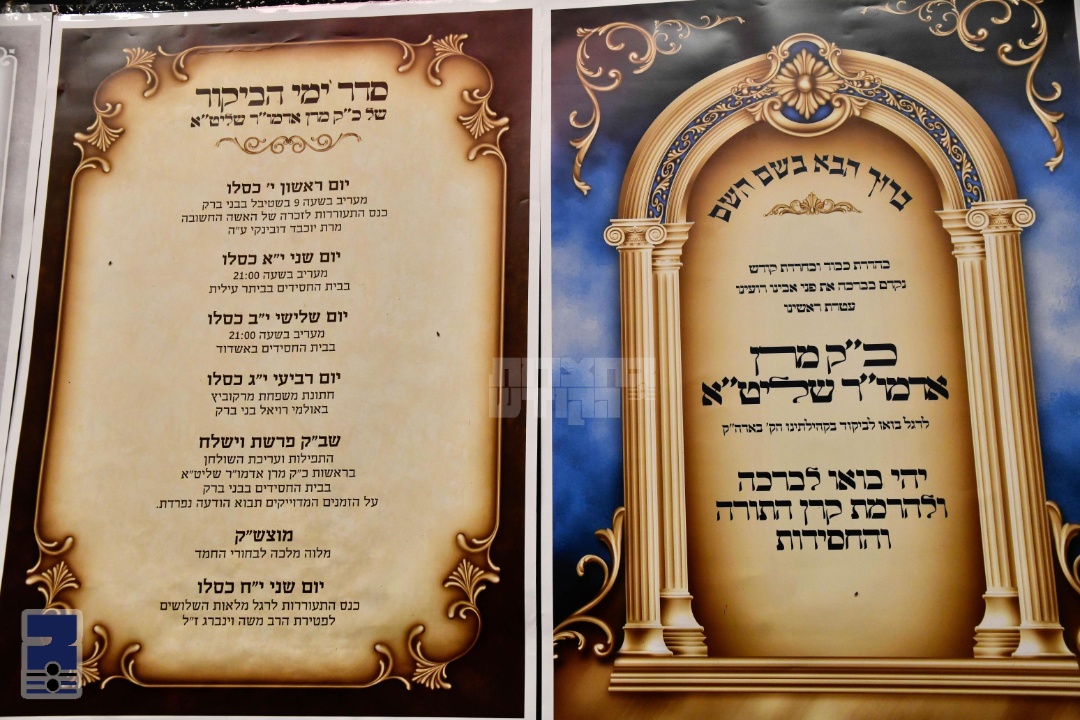 סדר ימי הביקור
של כ"ק מרן אדמו"ר שליט"א
יום ראשון י' כסלו
מעריב בשעה 9 בשטיבל בבני ברק
כנס התעוררות לזכרה של האשה החשובה
מרת יוכבד דובינקי ע"ה
יום שני י"א כסלו
מעריב בשעה 21:00
בבית החסידים בביתר עילית
יום שלישי י"ב כסלו
מעריב בשעה 21:00
בבית החסידים באשדוד
יום רביעי י"ג כסלו
חתונת משפחת מרקוביץ
באולמי רויאל בני ברק
שב"ק פרשת וישלח
התפילות ועריכת השולחן
בראשות כ"ק מרן אדמו"ר שליט"א
בבית החסידים בבני ברק
על הזמנים המדוייקים תבוא הודעה נפרדת.
מוצש"ק
מלוה מלכה לבחורי החמד
יום שני י"ח כסלו
כנס התעוררות לרגל מלאות השלושים
לפטירת הרב משה וינברג ז"ל
ברוך הבא בשם השם
בהדרת כבוד ובחרדת קודש
נקדם בברכה את פני אבינו רוענו
עטרת ראשינו
כ"ק מרן
אדמו"ר שליט"א
לרגל בואו לביקור בקהילתינו הק' באדה"ק
יהי בואו לברכה
ולהרמת קרן התורה
והחסידות
בחצרות
הקודש